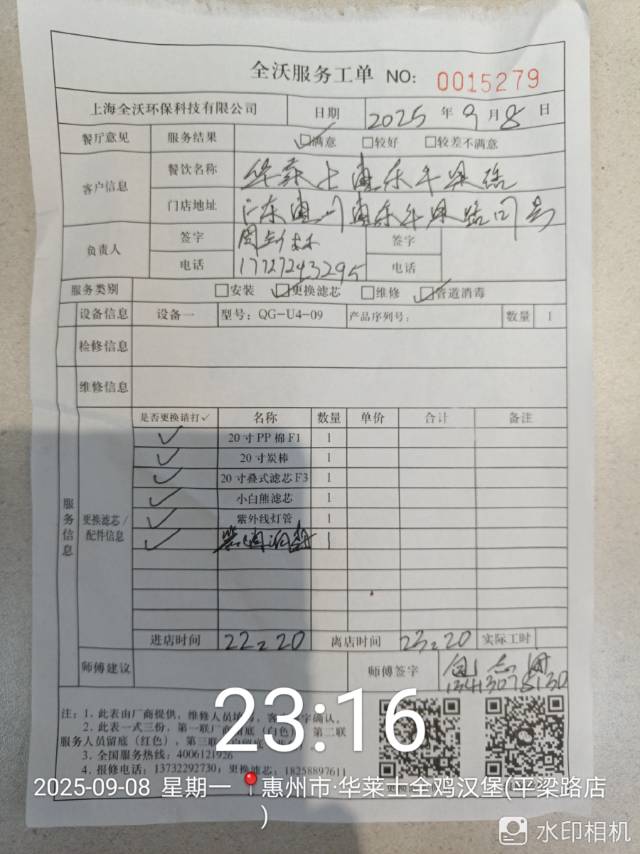 全沃服务工单 NO: 0015279
上海全沃环保科技有限公司 日期 2025 年 9 月 8 日
餐厅意见 服务结果 ☑满意 □较好 □较差不满意
客户信息 餐饮名称 华莱士惠东平梁路
门店地址 广东惠州惠东平梁路
负责人 签字 签字
电话 17272243295 电话
服务类别 □安装 ☑更换滤芯 □维修 ☑管道消毒
设备信息 设备一 型号: QG-U4-09 产品序列号: 数量 1
检修信息
维修信息
服务信息 更换滤芯/配件信息
是否更换请打✓ 名称 数量 单价 合计 备注
✓ 20寸PP棉F1 1
✓ 20寸炭棒 1
✓ 20寸叠式滤芯F3 1
✓ 小白熊滤芯 1
✓ 紫外线灯管 1
✓ 1
进店时间 22:20 离店时间 23:20 实际工时
师傅建议 师傅签字
13413078130
注: 1. 此表由厂商提供, 维修人员填
字确认。
2. 此表一式三份, 第一联
底(白色) 第二联
服务人员留底(红色), 第三联
3. 全国服务热线: 4006121926
4. 报修电话: 13732292730; 更换滤芯: 18258897611
23:16
2025-09-08 星期一 惠州市·华莱士全鸡汉堡(平梁路店
)
水印相机